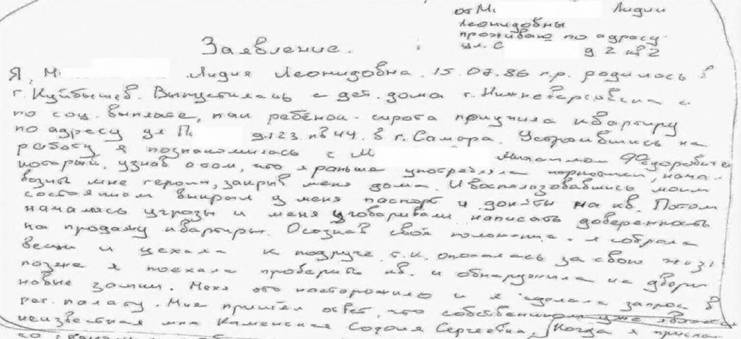 от М. Лидии
Леонидовны
проживаю по адресу
ул. С д. 2 кв 2
Заявление.
Я, М. Лидия Леонидовна. 15.07.86 г.р. родилась в
г. Куйбышев. Выпустилась с дет. дома г. и
по соц. выплате, как ребёнок-сирота приучила квартиру
по адресу ул П. д 123 кв 44. в г. Самара. Устроившись на
работу я познакомилась с М Михаилом Фёдоровичем
который, узнав о том, что я раньше употребляла наркотики, начал
возить мне героин, закрыв меня дома. И воспользовавшись моим
состоянием выкрал у меня паспорт и док-ты на кв. Потом
начались угрозы и меня уговаривали написать доверенность
на продажу квартиры. Осознав своё положение я собрала
вещи и уехала к подруге т.к. опасалась за свою жизнь
позже я поехала проверить кв. и обнаружила на двери
новые замки. Меня это насторожило и я сделала запрос в
рег. палату. Мне пришёл ответ, что собственником уже является
неизвестная мне Каменская Сергеевна. Когда я